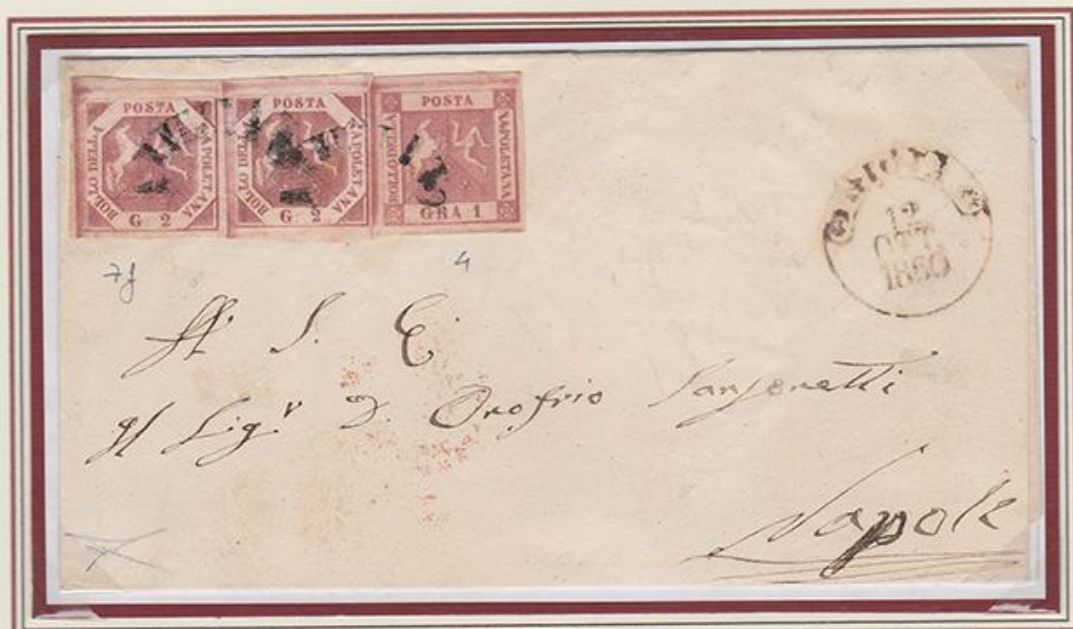 POSTA
BOLLO DELLA
NAPOLETANA
G. 2
POSTA
BOLLO DELLA
NAPOLETANA
G. 2
POSTA
BOLLO DELLA
NAPOLETANA
GRA 1
12
OTT.
1860
7f
4
A S. E.
Il Sig.r D. Onofrio
Napoli